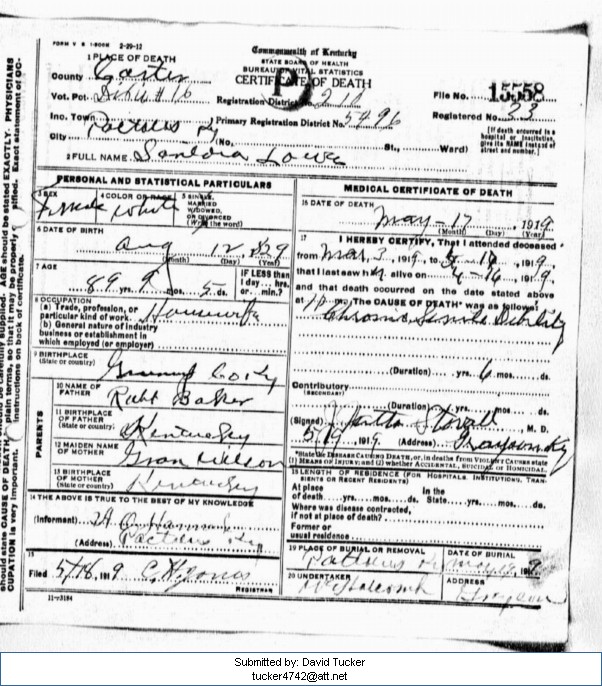 FORM V S 1-500M 2-29-12
Commonwealth of Kentucky
STATE BOARD OF HEALTH
BUREAU OF VITAL STATISTICS
CERTIFICATE OF DEATH
1 PLACE OF DEATH
County Carter
Vot. Pct. # 16
Registration District No. 211
File No. 15558
Inc. Town Pactolus Ky
Primary Registration District No. 5496
Registered No. 33
City (No. St., Ward)
[If death occurred in a hospital or institution, give its NAME instead of street and number.]
2 FULL NAME Lowe
PERSONAL AND STATISTICAL PARTICULARS
3 SEX Female
4 COLOR OR RACE White
5 SINGLE, MARRIED WIDOWED, OR DIVORCED (Write the word)
6 DATE OF BIRTH
Aug 12, 1829
(Month) (Day) (Year)
7 AGE
89 yrs. 9 mos. 5 ds.
IF LESS than 1 day... hrs. or... min.?
8 OCCUPATION
(a) Trade, profession, or particular kind of work. Housewife
(b) General nature of industry business or establishment in which employed (or employer)
9 BIRTHPLACE
(State or country) Co Ky
PARENTS
10 NAME OF FATHER Robt Baker
11 BIRTHPLACE OF FATHER (State or country) Kentucky
12 MAIDEN NAME OF MOTHER Wilson
13 BIRTHPLACE OF MOTHER (State or country) Kentucky
14 THE ABOVE IS TRUE TO THE BEST OF MY KNOWLEDGE
(Informant)
(Address) Pactolus Ky
15
Filed 5/18 1919 C H Jones
REGISTRAR
11-3184
MEDICAL CERTIFICATE OF DEATH
16 DATE OF DEATH
May - 17, 1919
(Month) (Day) (Year)
17 I HEREBY CERTIFY, That I attended deceased
from Mar, 3, 1919, to 1919,
that I last saw h alive on 1919,
and that death occurred on the date stated above
at m. The CAUSE OF DEATH* was as follows:
Chronic Senile Debility
(Duration) yrs. 6 mos. ds.
Contributory
(SECONDARY)
(Duration) yrs. mos. ds.
(Signed) Stovall M. D.
5/19, 1919 (Address) Grayson Ky
*State the DISEASE CAUSING DEATH, or, in deaths from VIOLENT CAUSES state (1) MEANS OF INJURY; and (2) whether ACCIDENTAL, SUICIDAL or HOMICIDAL.
18 LENGTH OF RESIDENCE (FOR HOSPITALS, INSTITUTIONS, TRANSIENTS OR RECENT RESIDENTS)
At place of death yrs. mos. ds. In the State yrs. mos. ds.
Where was disease contracted, if not at place of death?
Former or usual residence
19 PLACE OF BURIAL OR REMOVAL
Pactolus
DATE OF BURIAL
May 18, 1919
20 UNDERTAKER
Holcomb
ADDRESS
Grayson
AGE should be stated EXACTLY. PHYSICIANS
should state CAUSE OF DEATH in plain terms, so that it may be properly classified. Exact statement of OCCUPATION is very important. instructions on back of certificate.
Submitted by: David Tucker
tucker4742@att.net